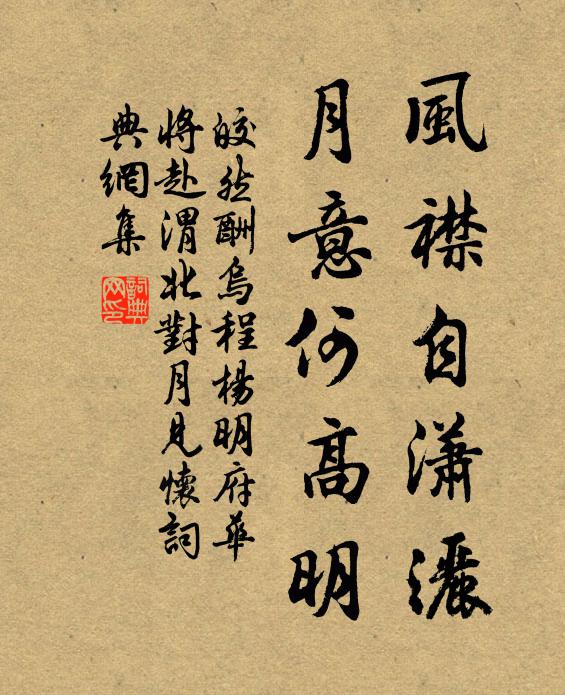 風襟自瀟灑
月意何高明
皎然酬烏程楊明府華
將赴渭北對月見懷詞
典網集
詞典網印